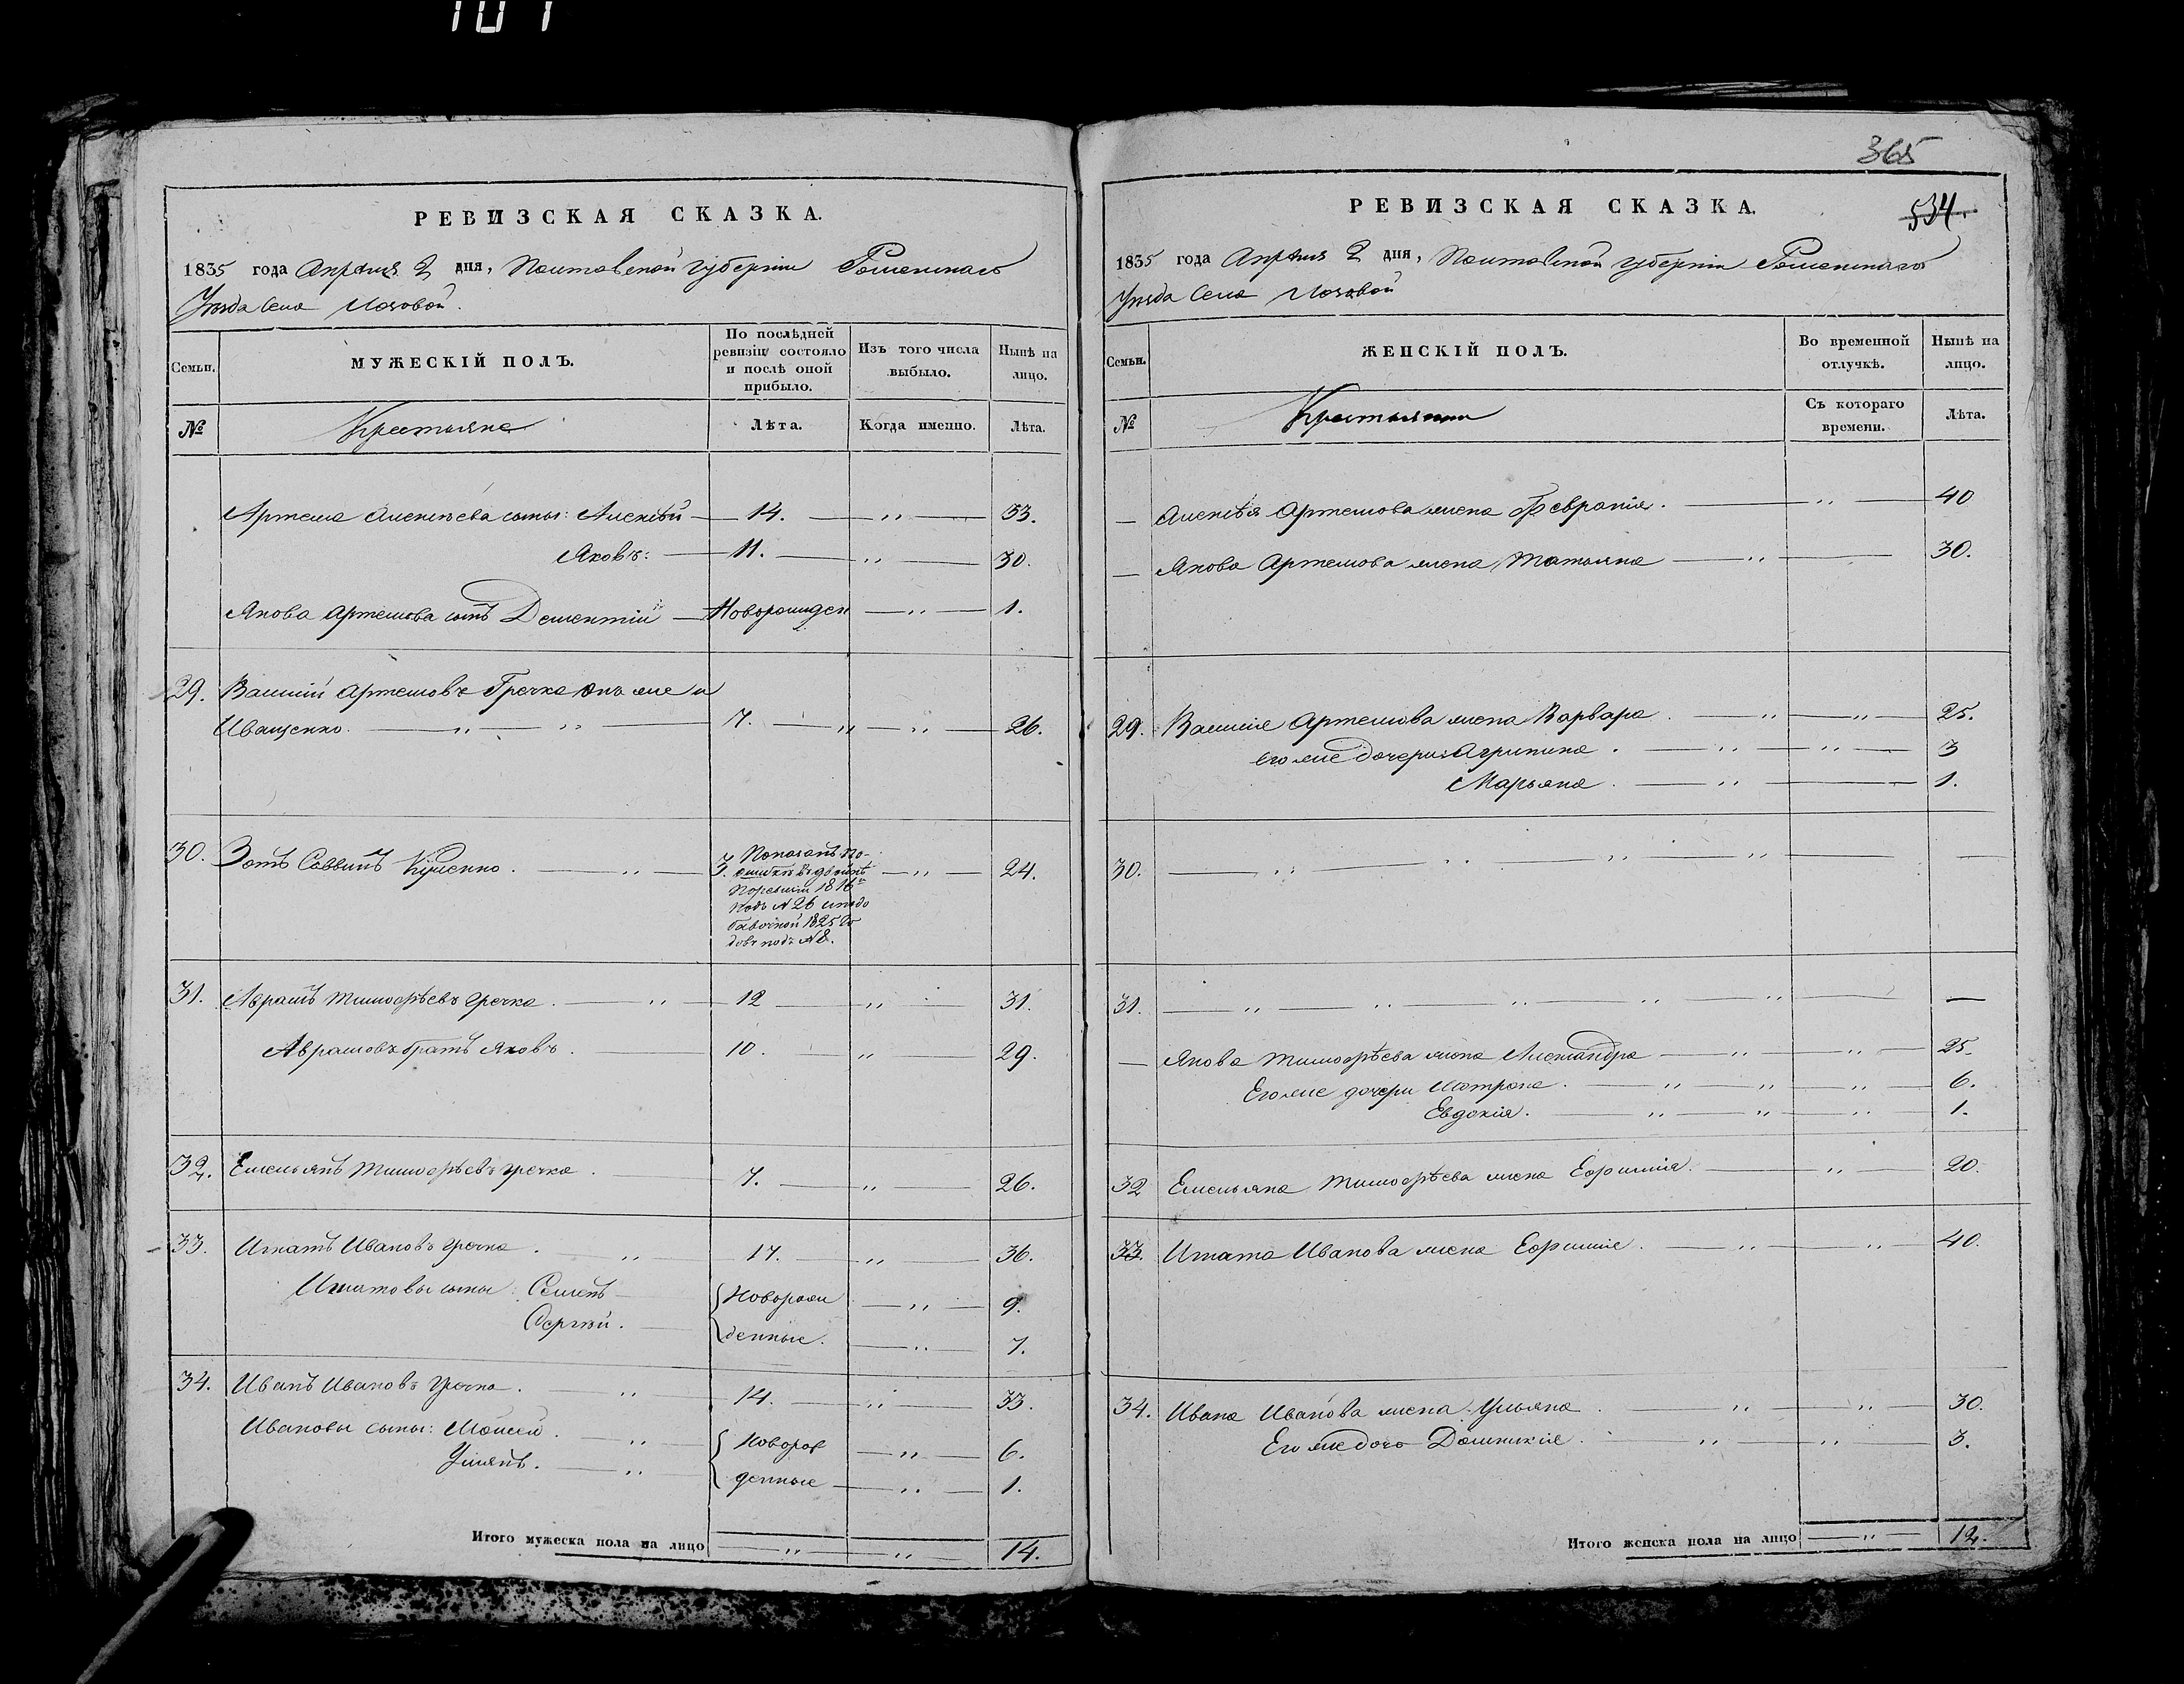 101
РЕВИЗСКАЯ СКАЗКА.
1835 года Апрѣля 2 дня, Полтавской губерніи Роменскаго
Уѣзда Села Лозовой.
Семьи.
МУЖЕСКІЙ ПОЛЪ.
По послѣдней
ревизіи состояло
и послѣ оной
прибыло.
Изъ того числа
выбыло.
Нынѣ на
лицо.
№
Крестьяне
Лѣта.
Когда именно.
Лѣта.
Артема Алексѣева сыны: Алексѣй 14. 33.
Яковъ: 11. 30.
Якова Артемова сынъ Дементій Новорожден 1.
29. Василий Артемовъ Гречка онъ же и
Иващенко 7. 26.
30. Зотъ Саввинъ 3. Показанъ по- 24.
ошибкѣ
Поревизіи 1816
Подъ № 26 и подо
бавочной 1825 го
довъ подъ № 8.
31. Аврамъ Тимофѣевъ Гречка. 12 31.
Аврамовъ братъ Яковъ. 10. 29.
32. Емельянъ Тимофѣевъ Гречка. 7. 26.
33. Игнатъ Ивановъ Гречка. 17. 36.
Игнатовы сыны: Семенъ Новорож 9.
Сергѣй. денные. 7.
34. Иванъ Ивановъ Гречка. 14. 33.
Ивановы сыны: Моисей. Новорож 6.
денные 1.
Итого мужеска пола на лицо 14.
365
534.
РЕВИЗСКАЯ СКАЗКА.
1835 года Апрѣля 2 дня, Полтавской губерніи Роменскаго
Уѣзда Села Лозовой
Семьи.
ЖЕНСКІЙ ПОЛЪ.
Во временной
отлучкѣ.
Нынѣ на
лицо.
№
Крестьянки
Съ котораго
времени.
Лѣта.
Алексѣя Артемова жена Февронія. 40
Якова Артемова жена Татьяна 30.
29. Василія Артемова жена Варвара. 25.
его же дочери: Агрипина. 3
Марьяна. 1.
30.
31.
Якова Тимофѣева жена Александра 25.
Его же дочери Мотрона. 6.
Евдокія. 1.
32 Емельяна Тимофѣева жена Ефимія. 20.
33. Игната Иванова жена Ефимія. 40.
34. Ивана Иванова жена Ульяна. 30.
Его же дочь Домникія. 3.
Итого женска пола на лицо 12.